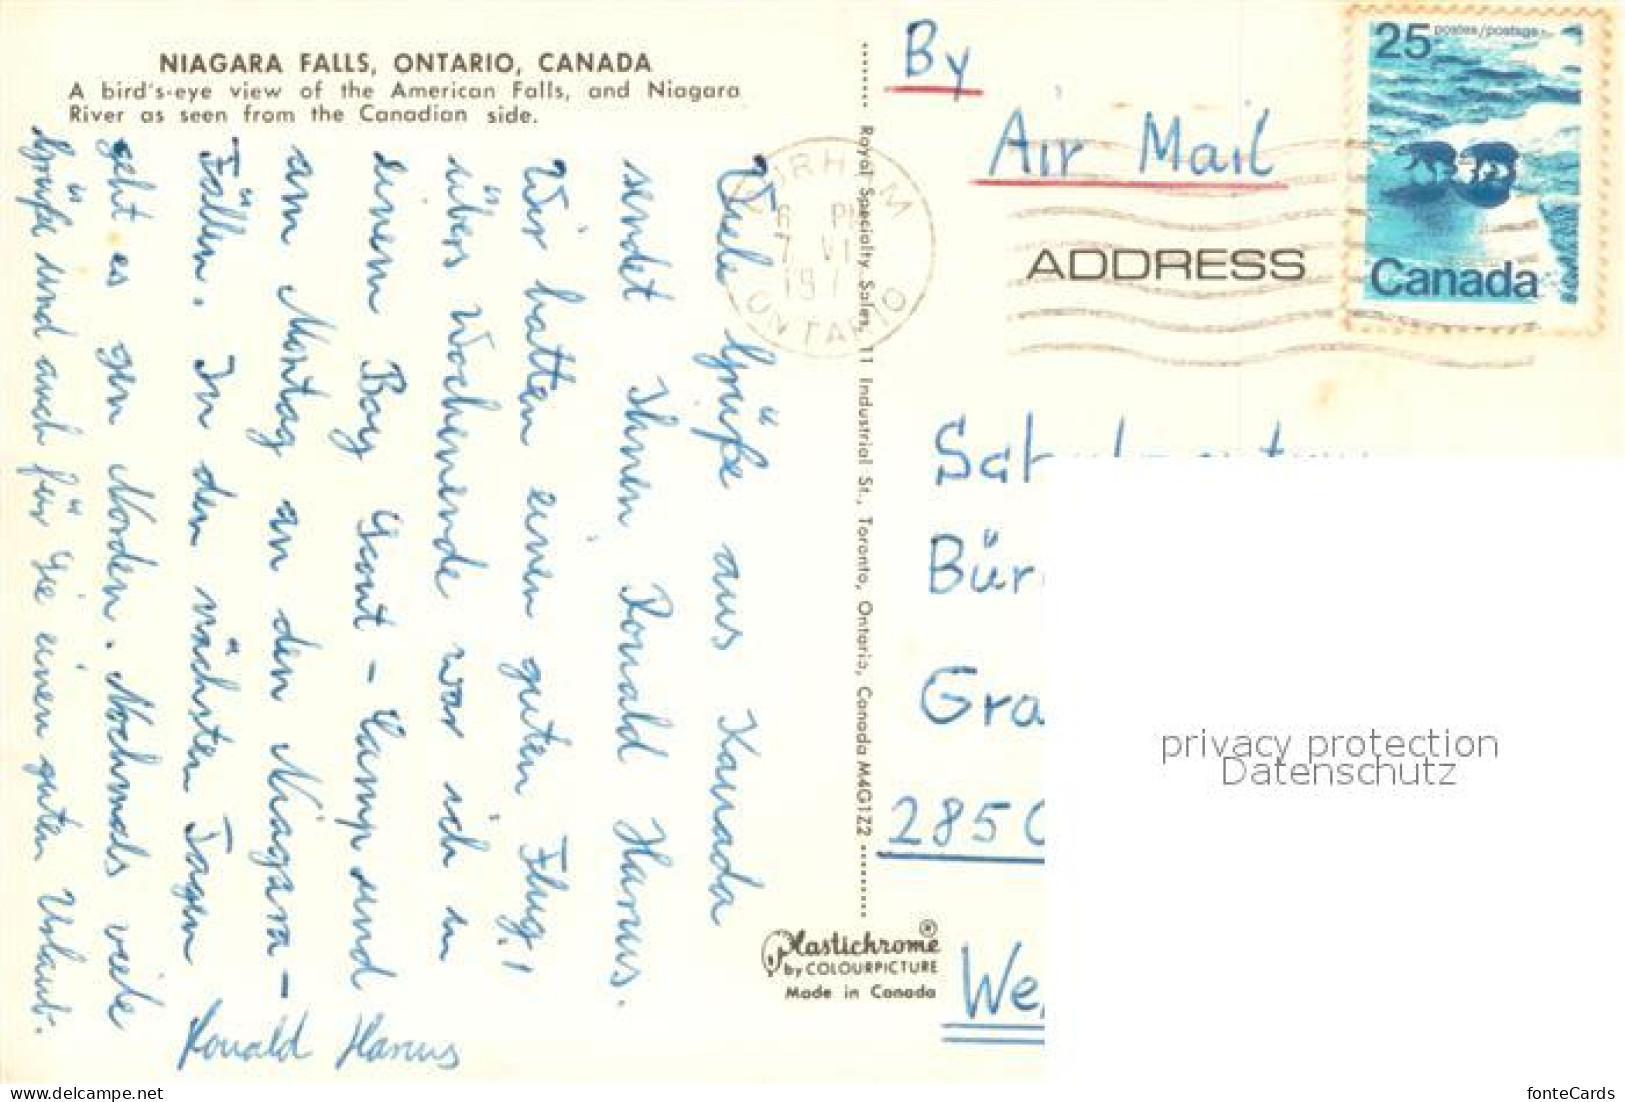 NIAGARA FALLS, ONTARIO, CANADA
A bird's-eye view of the American Falls, and Niagara
River as seen from the Canadian side.
Viele Grüße aus Kanada
sendet Ihnen Ronald Harnus.
Wir hatten einen guten Flug!
Übers Wochenende war ich in
einem Boy Scout - Camp und
am Montag an den Niagara-
Fällen. In den nächsten Tagen
geht es gen Norden. Nochmals viele
Grüße und auch für Sie einen guten Urlaub.
Ronald Harnus
Royal Specialty Sales, 11 Industrial St., Toronto, Ontario, Canada M4G1Z2
Plastichrome ®
by COLOURPICTURE
Made in Canada
By
Air Mail
25 postes/postage
Canada
PM
7 VI
197
ONTARIO
ADDRESS
Bür
Gra
285
We
privacy protection
Datenschutz
www.delcampe.net
fonteCards